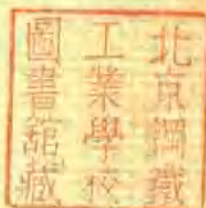 北京鋼鐵
工業學校
圖書館藏